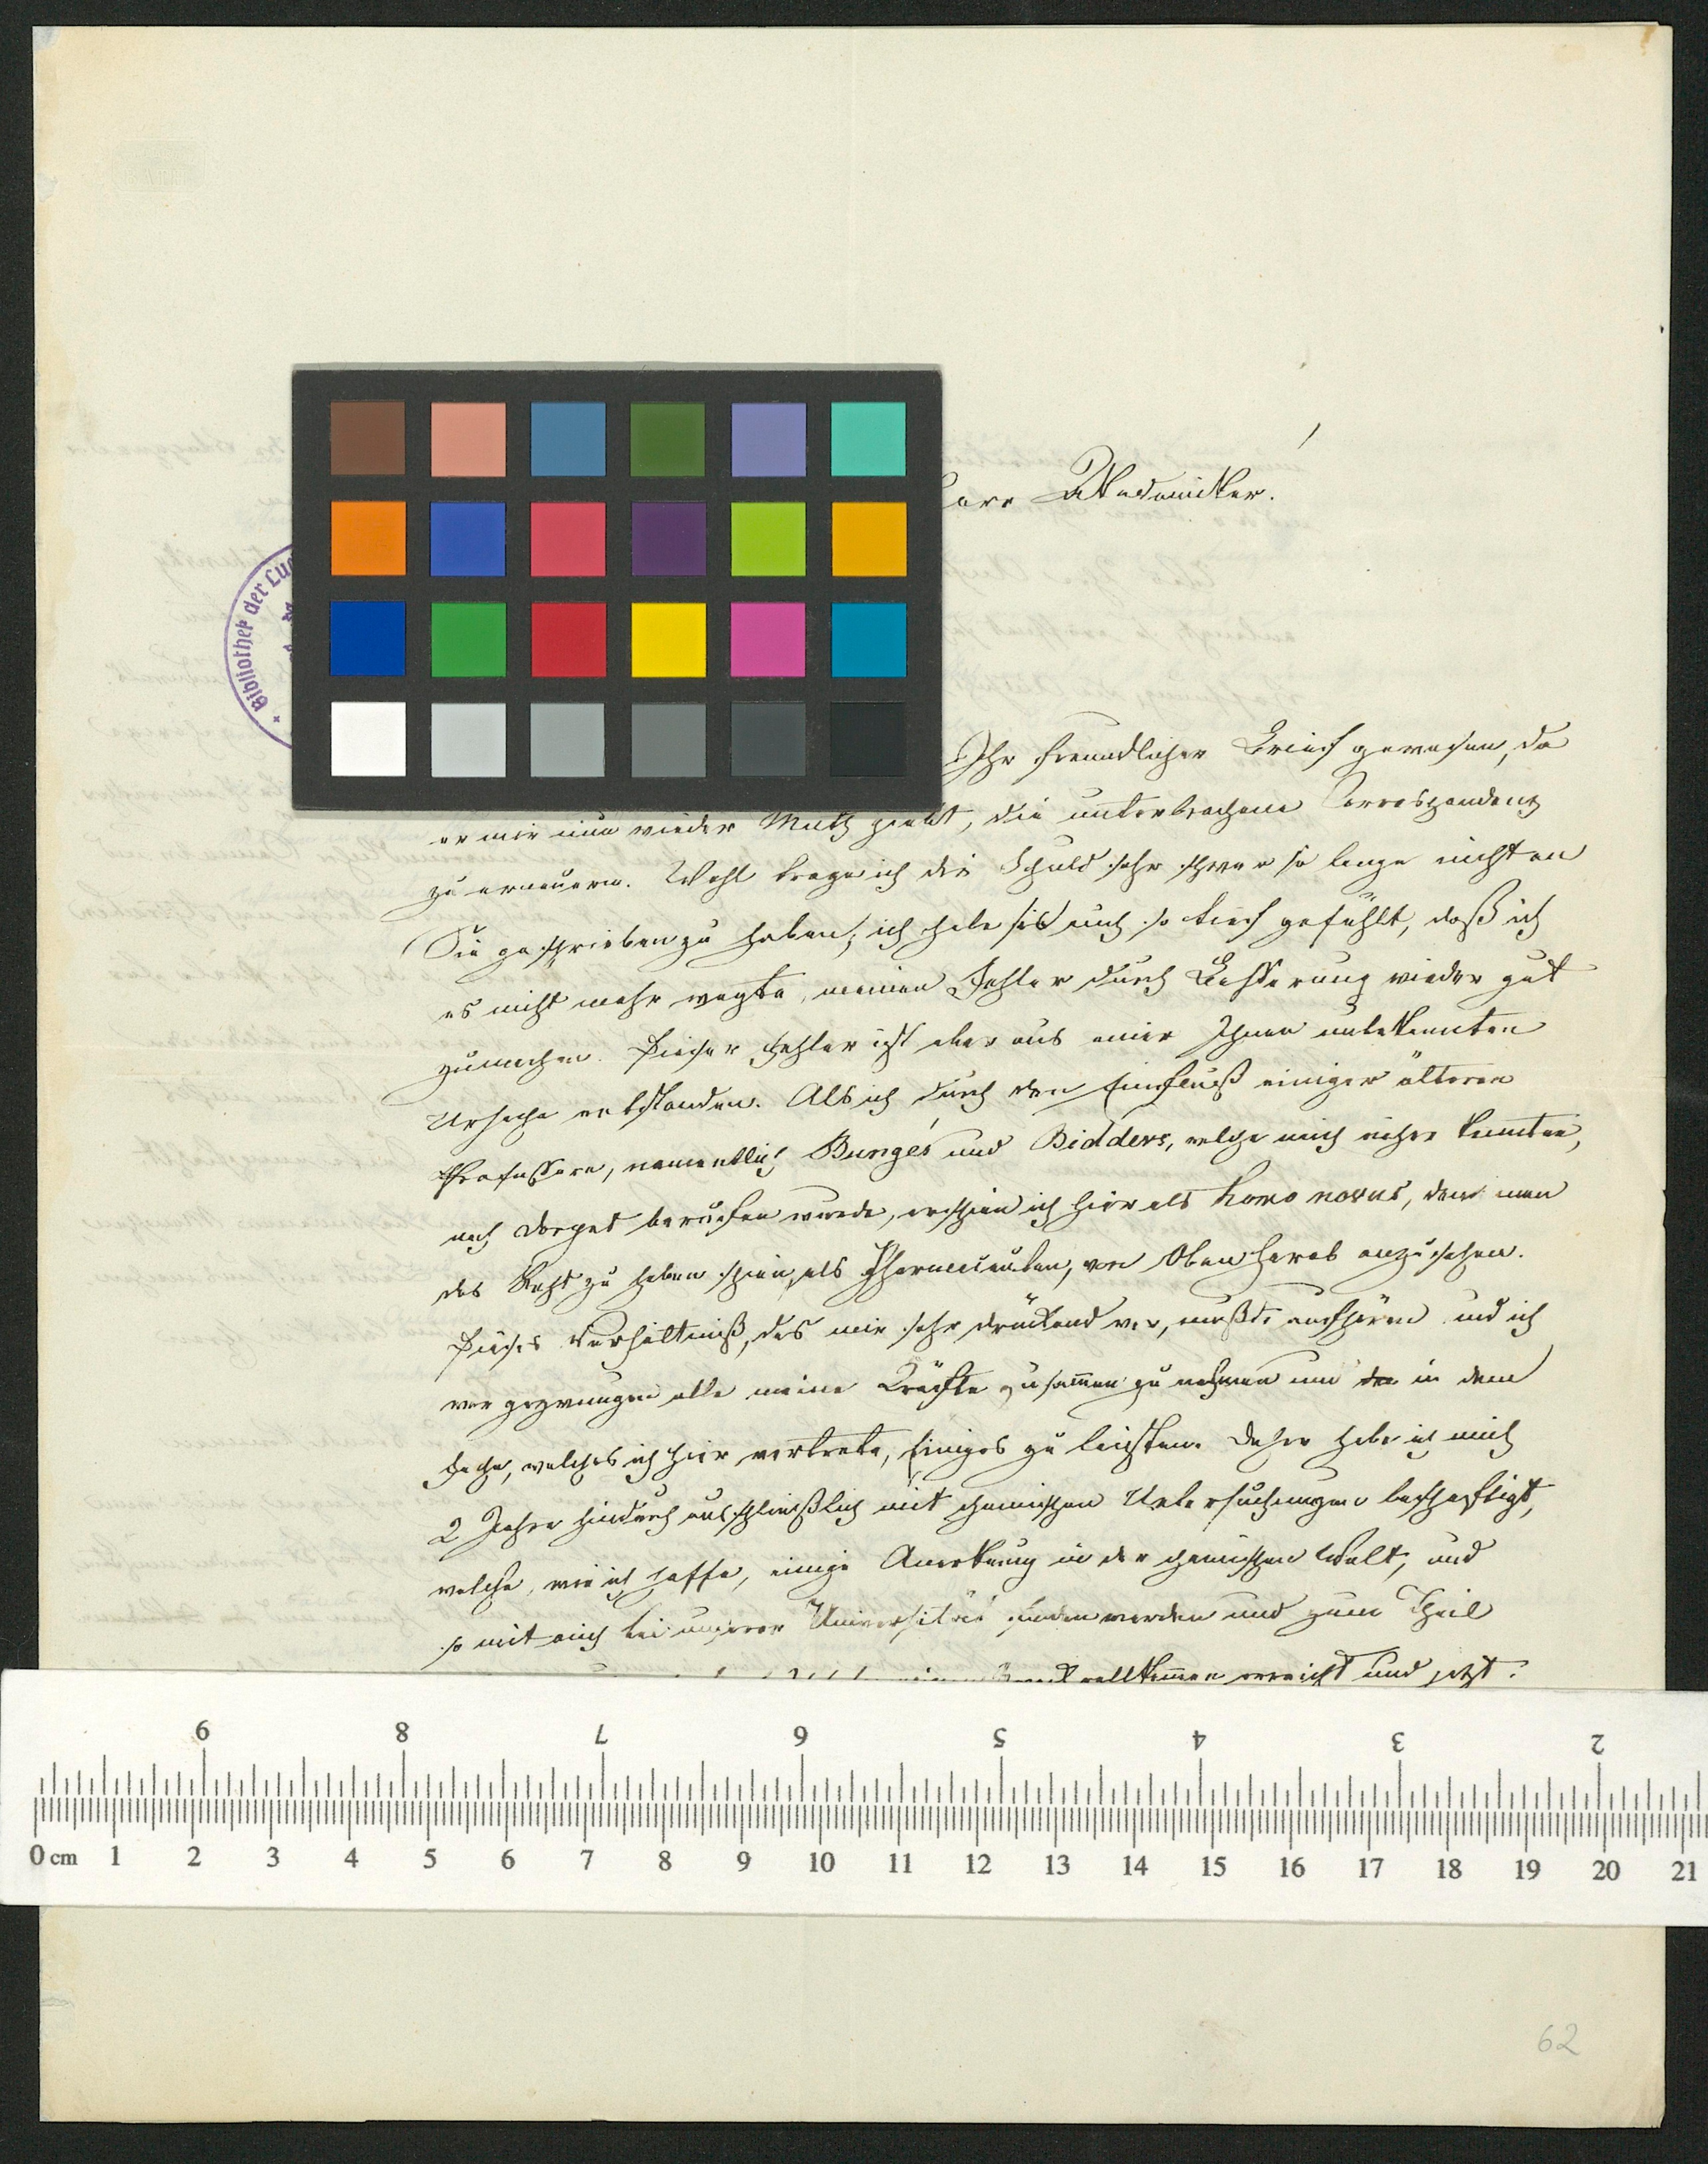 Bibliothek der Lud
Akademiker.
Ihr freundlicher Brief gewesen, da
er mir nun wieder Muth giebt, die unterbrochene Correspondenz
zu erneuern. Wohl trage ich die Schuld sehr schwer so lange nicht an
Sie geschrieben zu haben; ich habe sie auch so tief gefühlt, daß ich
es nicht mehr wagte, meinen Fehler durch Besserung wieder gut
zumachen. Dieser Fehler ist aber aus einer Ihnen unbekannten
Ursache entstanden. Als ich durch den Einfluß einiger älteren
Professore, namentlich Bunge's und Bidders, welche mich näher kannten,
nach Dorpat berufen wurde, erschien ich hier als homo novus, den man
das Recht zu haben schien, als Pharmaceuten, von Oben herab anzusehen.
Dieses Verhältniß, das mir sehr drückend war, mußte aufhören und ich
war gezwungen alle meine Kräfte zusammen zu nehmen um in dem
Fache, welches ich hier vertrete, Einiges zu leisten. Daher habe ich mich
2 Jahre hindurch ausschließlich mit chemischen Untersuchungen beschäftigt,
welche, wie ich hoffe, einige Anerkennung in der chemischen Welt, und
so mit auch bei unserer Universität finden werden und zum Theil
vollkommen erreicht und jetzt
9 8 7 6 5 4 3 2
0 cm 1 2 3 4 5 6 7 8 9 10 11 12 13 14 15 16 17 18 19 20 21
62